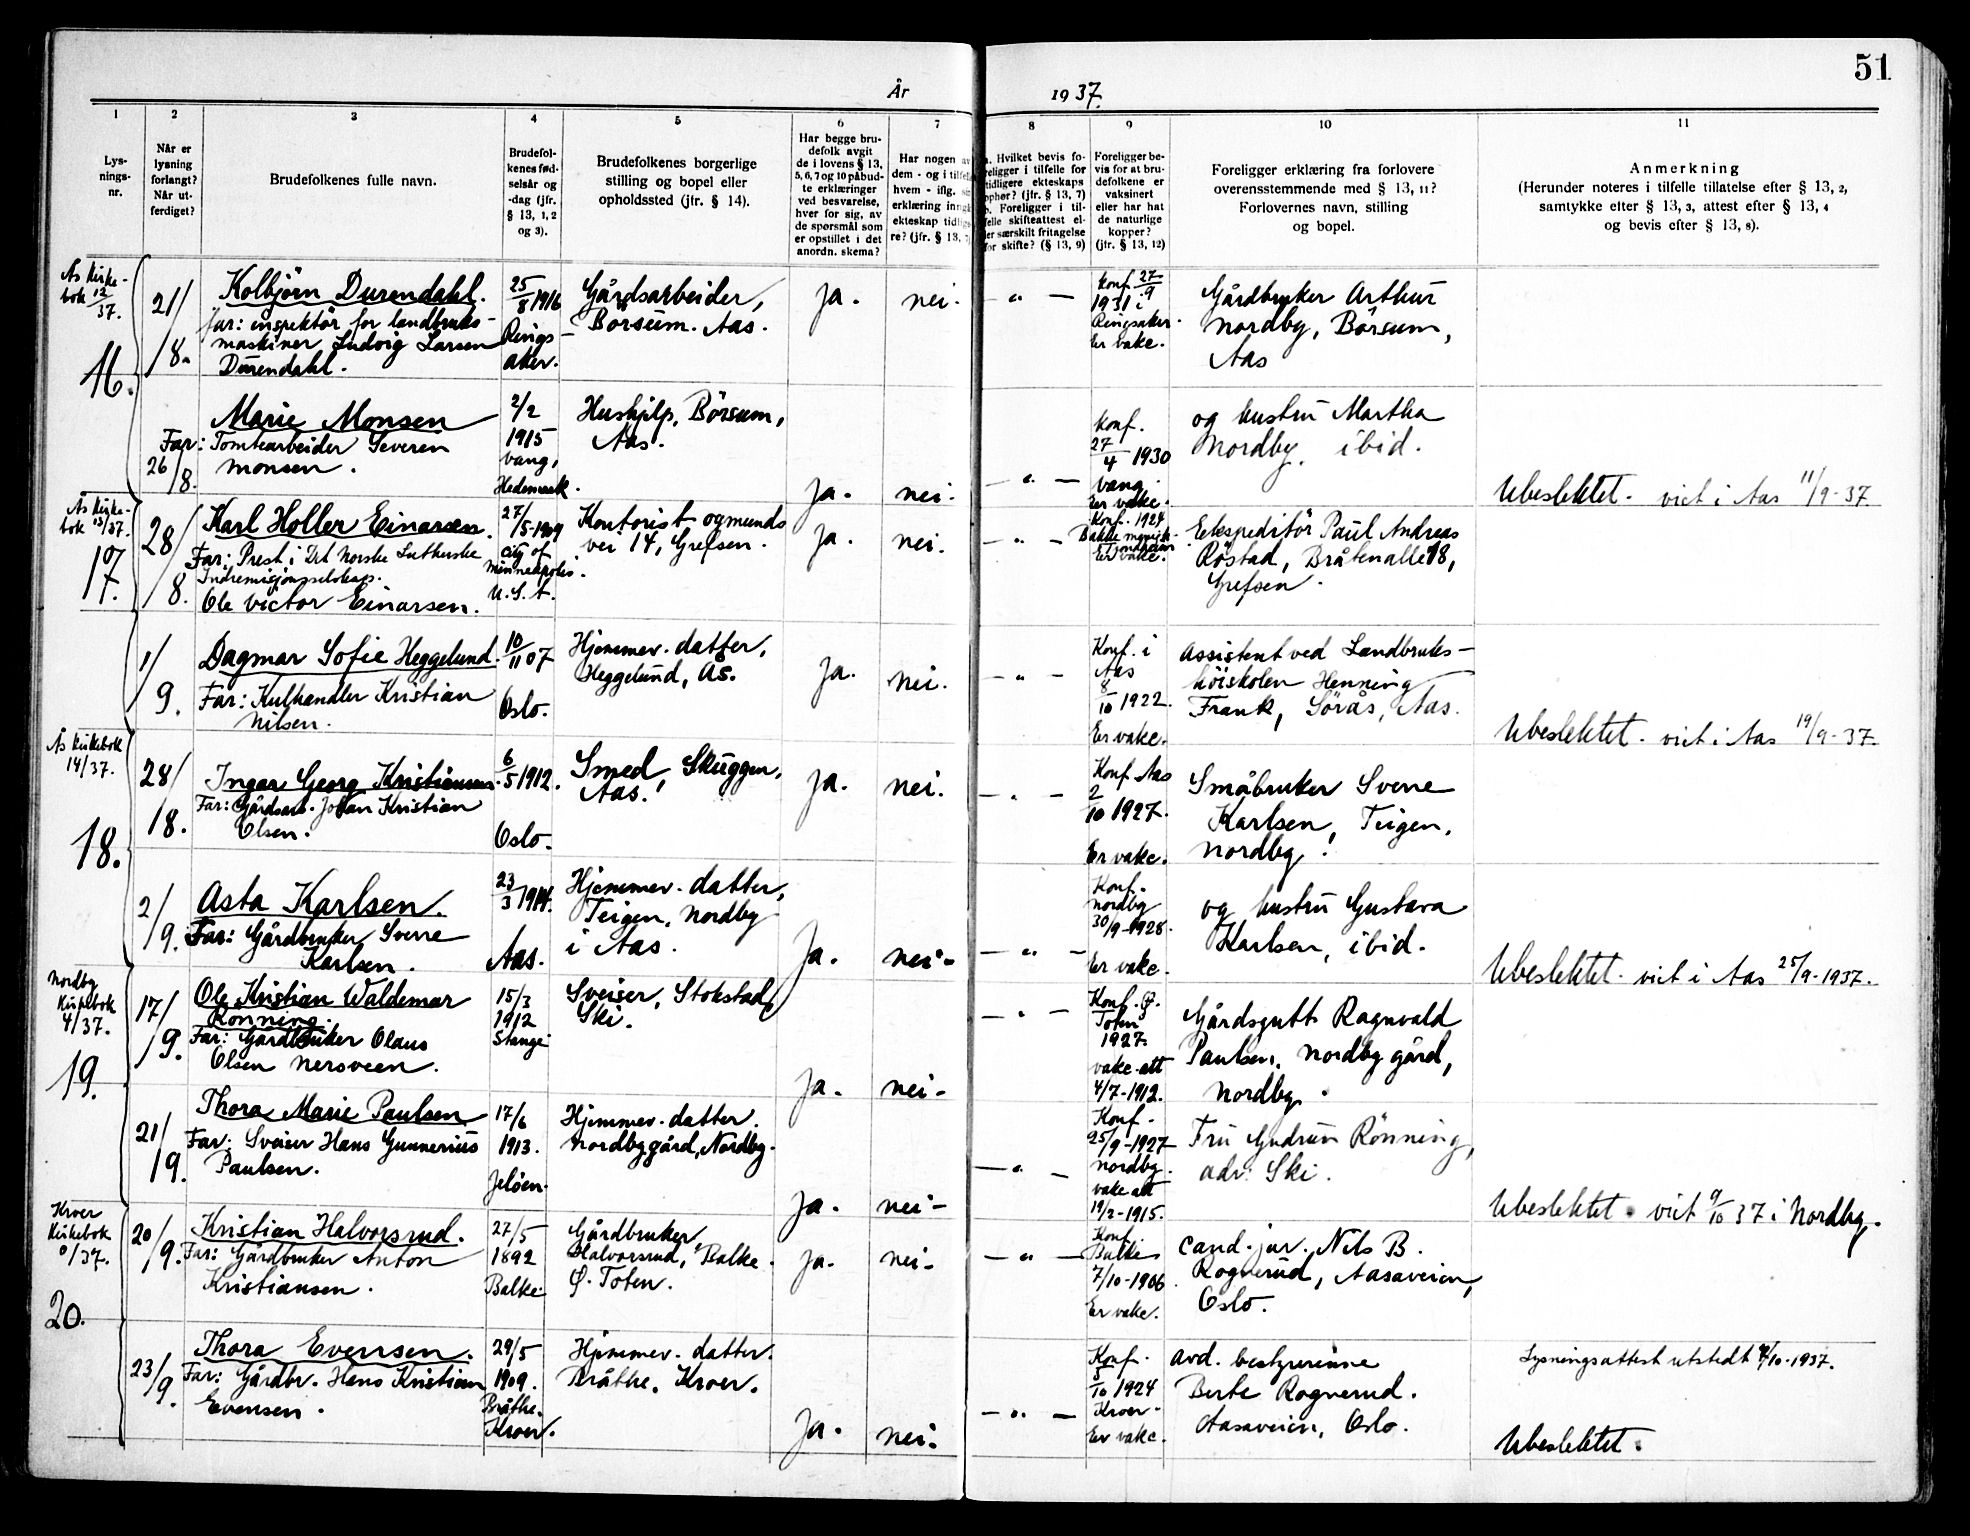 51
År 1937.
1 2 3 4 5 6 7 8 9 10 11
Lys-
nings-
nr.
Når er
lysning
forlangt?
Når ut-
ferdiget?
Brudefolkenes fulle navn.
Brudefol-
kenes fød-
selsår og
-dag (jfr.
§ 13, 1, 2
og 3).
Brudefolkenes borgerlige
stilling og bopel eller
opholdssted (jfr. § 14).
Har begge bru-
defolk avgit
de i lovens § 13,
5, 6, 7 og 10 påbud-
te erklæringer
ved besvarelse,
hver for sig, av
de spørsmål som
er opstillet i det
anordn. skema?
Har nogen av
dem - og i tilfelle
hvem - iflg.
erklæring inngå
ekteskap tidlige-
re? (jfr. § 13, 7)
a. Hvilket bevis fo-
religger i tilfelle for
tidligere ekteskaps
ophør? (jfr. § 13, 7)
b. Foreligger i til-
felle skifteattest el-
ler særskilt fritagelse
for skifte? (§ 13, 9)
Foreligger be-
vis for at bru-
defolkene er
vaksinert
eller har hat
de naturlige
kopper?
(jfr. § 13, 12)
Foreligger erklæring fra forlovere
overensstemmende med § 13, 11?
Forlovernes navn, stilling
og bopel.
Anmerkning
(Herunder noteres i tilfelle tillatelse efter § 13, 2,
samtykke efter § 13, 3, attest efter § 13, 4
og bevis efter § 13, 8).
Ås Kirke-
bok 12/37.
16.
21/8.
Kolbjörn Durendahl.
Far: inspektör for landbruks-
maskiner Ludvig Larsen
Durendahl.
25/8 1916
Rings-
aker.
Gårdsarbeider,
Börsum. Aas.
Ja.
nei.
- " -
Konf. 27/9
1931 i
Ringsaker.
Er vake.
Gårdbruker Arthur
Nordby, Börsum,
Aas
26/8.
Marie Monsen
Far: Tomtearbeider Severen
Monsen.
2/2
1915
Vang,
Hedemark.
Hushjelp, Börsum,
Aas.
Ja.
nei.
- " -
Konf.
27/4 1930
Vang.
Er vake.
og hustru Martha
Nordby. ibid.
Ubeslektet. viet i Aas 11/9-37.
Ås Kirke-
bok 13/37.
17.
28/8.
Karl Holler Einarsen.
Far: Prest i Det Norske Lutherske
Indremisjonsselskap.
Ole Victor Einarsen.
27/5-1909
City of
Minneapolis.
U.S.A.
Kontorist ogmunds
vei 14, Grefsen.
Ja.
nei.
- " -
Konf. 1924
Bakke menigh.
Er vake.
Ekspeditör Paul Andreas
Röstad, Bråtenalle 18,
Grefsen.
1/9.
Dagmar Sofie Heggelund.
Far: Kulhandler Kristian
Nilsen.
10/11 07
Oslo.
Hjemmev. datter,
Heggelund, Ås.
Ja.
nei.
- " -
Konf. i
Aas
8/10 1922.
Er vake.
Assistent ved Landbruks-
höiskolen Henning
Frank, Sörås, Aas.
Ubeslektet. viet i Aas 19/9-37.
Ås Kirkebok
14/37.
18.
28/8.
Ingar Georg Kristiansen.
Far: Gårdsarb. Johan Kristian
Olsen.
6/5 1912.
Oslo.
Smed, Skuggen,
Aas.
Ja.
nei.
- " -
Konf. Aas
2/10 1927.
Er vake.
Småbruker Sverre
Karlsen, Teigen,
Nordby.
2/9.
Asta Karlsen.
Far: Gårdbruker Sverre
Karlsen.
23/3 1914.
Aas.
Hjemmev. datter,
Teigen, Nordby
i Aas.
Ja.
nei-
- " -
Konf.
Nordby
30/9-1928.
Er vake.
og hustru Gustava
Karlsen, ibid.
Ubeslektet. viet i Aas 25/9-1937.
Nordby
Kirkebok
4/37.
19.
17/9.
Ole Kristian Waldemar
Rönning.
Far: Gårdbruker Olaus
Olsen Nersveen.
15/3
1912
Stange
Sveiser, Stokstad,
Ski.
Ja.
nei-
- " -
Konf. Ø.
Toten
1927.
vake-att
4/7-1912.
Gårdsgutt Ragnvald
Paulsen, Nordby gård,
Nordby.
21/9.
Thora Marie Paulsen
Far: Sveiser Hans Gunnerius
Paulsen.
17/6
1913.
Jelöen.
Hjemmev. datter.
Nordby gård, Nordby.
Ja.
nei-
- " -
Konf.
25/9-1927
Nordby.
vake att
19/2-1915.
Fru Gudrun Rönning,
adr: Ski.
Ubeslektet. viet 9/10 37 i Nordby.
Kroer
Kirkebok
0/37.
20.
20/9.
Kristian Halvorsrud.
Far: Gårdbruker Anton
Kristiansen.
27/5
1892
Balke
Gårdbruker,
Halvorsrud, Balke.
Ø. Toten.
Ja.
nei-
- " -
Konf.
Balke
7/10-1906.
Er vake.
Cand. jur. Nils B.
Rognerud, Aasaveien,
Oslo.
23/9.
Thora Evensen.
Far: Gårdbr. Hans Kristian
Evensen.
29/5
1909.
Bråthe.
Kroer.
Hjemmev. datter.
Bråthe. Kroer.
Ja.
nei.
- " -
Konf.
5/10 1924
Kroer-
Er vake.
avd. bestyrerinne
Berte Rognerud.
Aasaveien, Oslo.
Lysningsattest utstedt /10-1937.
Ubeslektet.